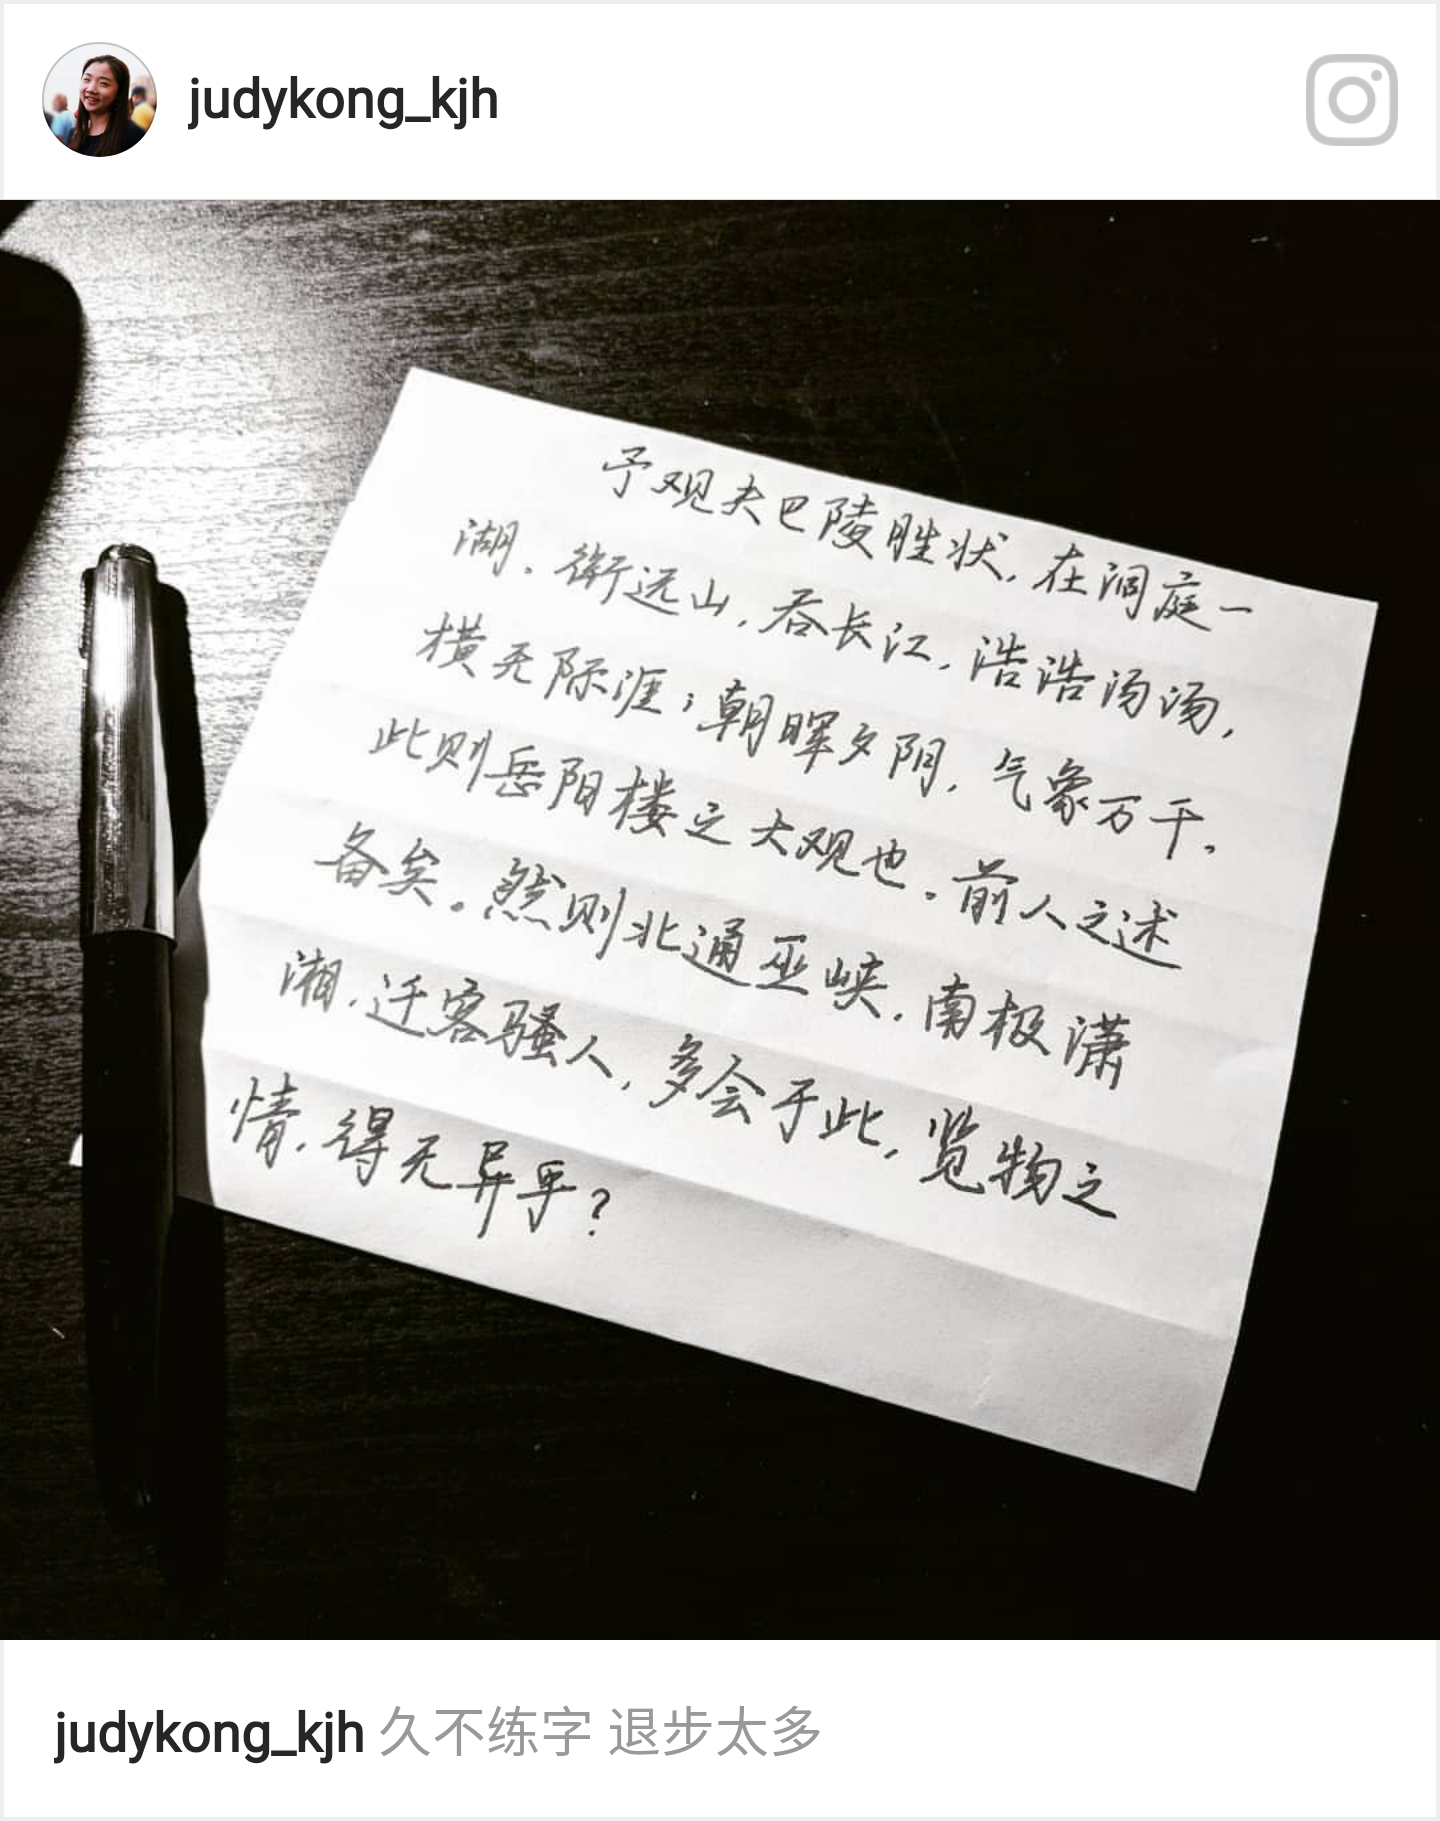 judykong_kjh
予观夫巴陵胜状，在洞庭一
湖。衔远山，吞长江，浩浩汤汤，
横无际涯；朝晖夕阴，气象万千。
此则岳阳楼之大观也。前人之述
备矣。然则北通巫峡，南极潇
湘，迁客骚人，多会于此，览物之
情，得无异乎？
judykong_kjh 久不练字 退步太多